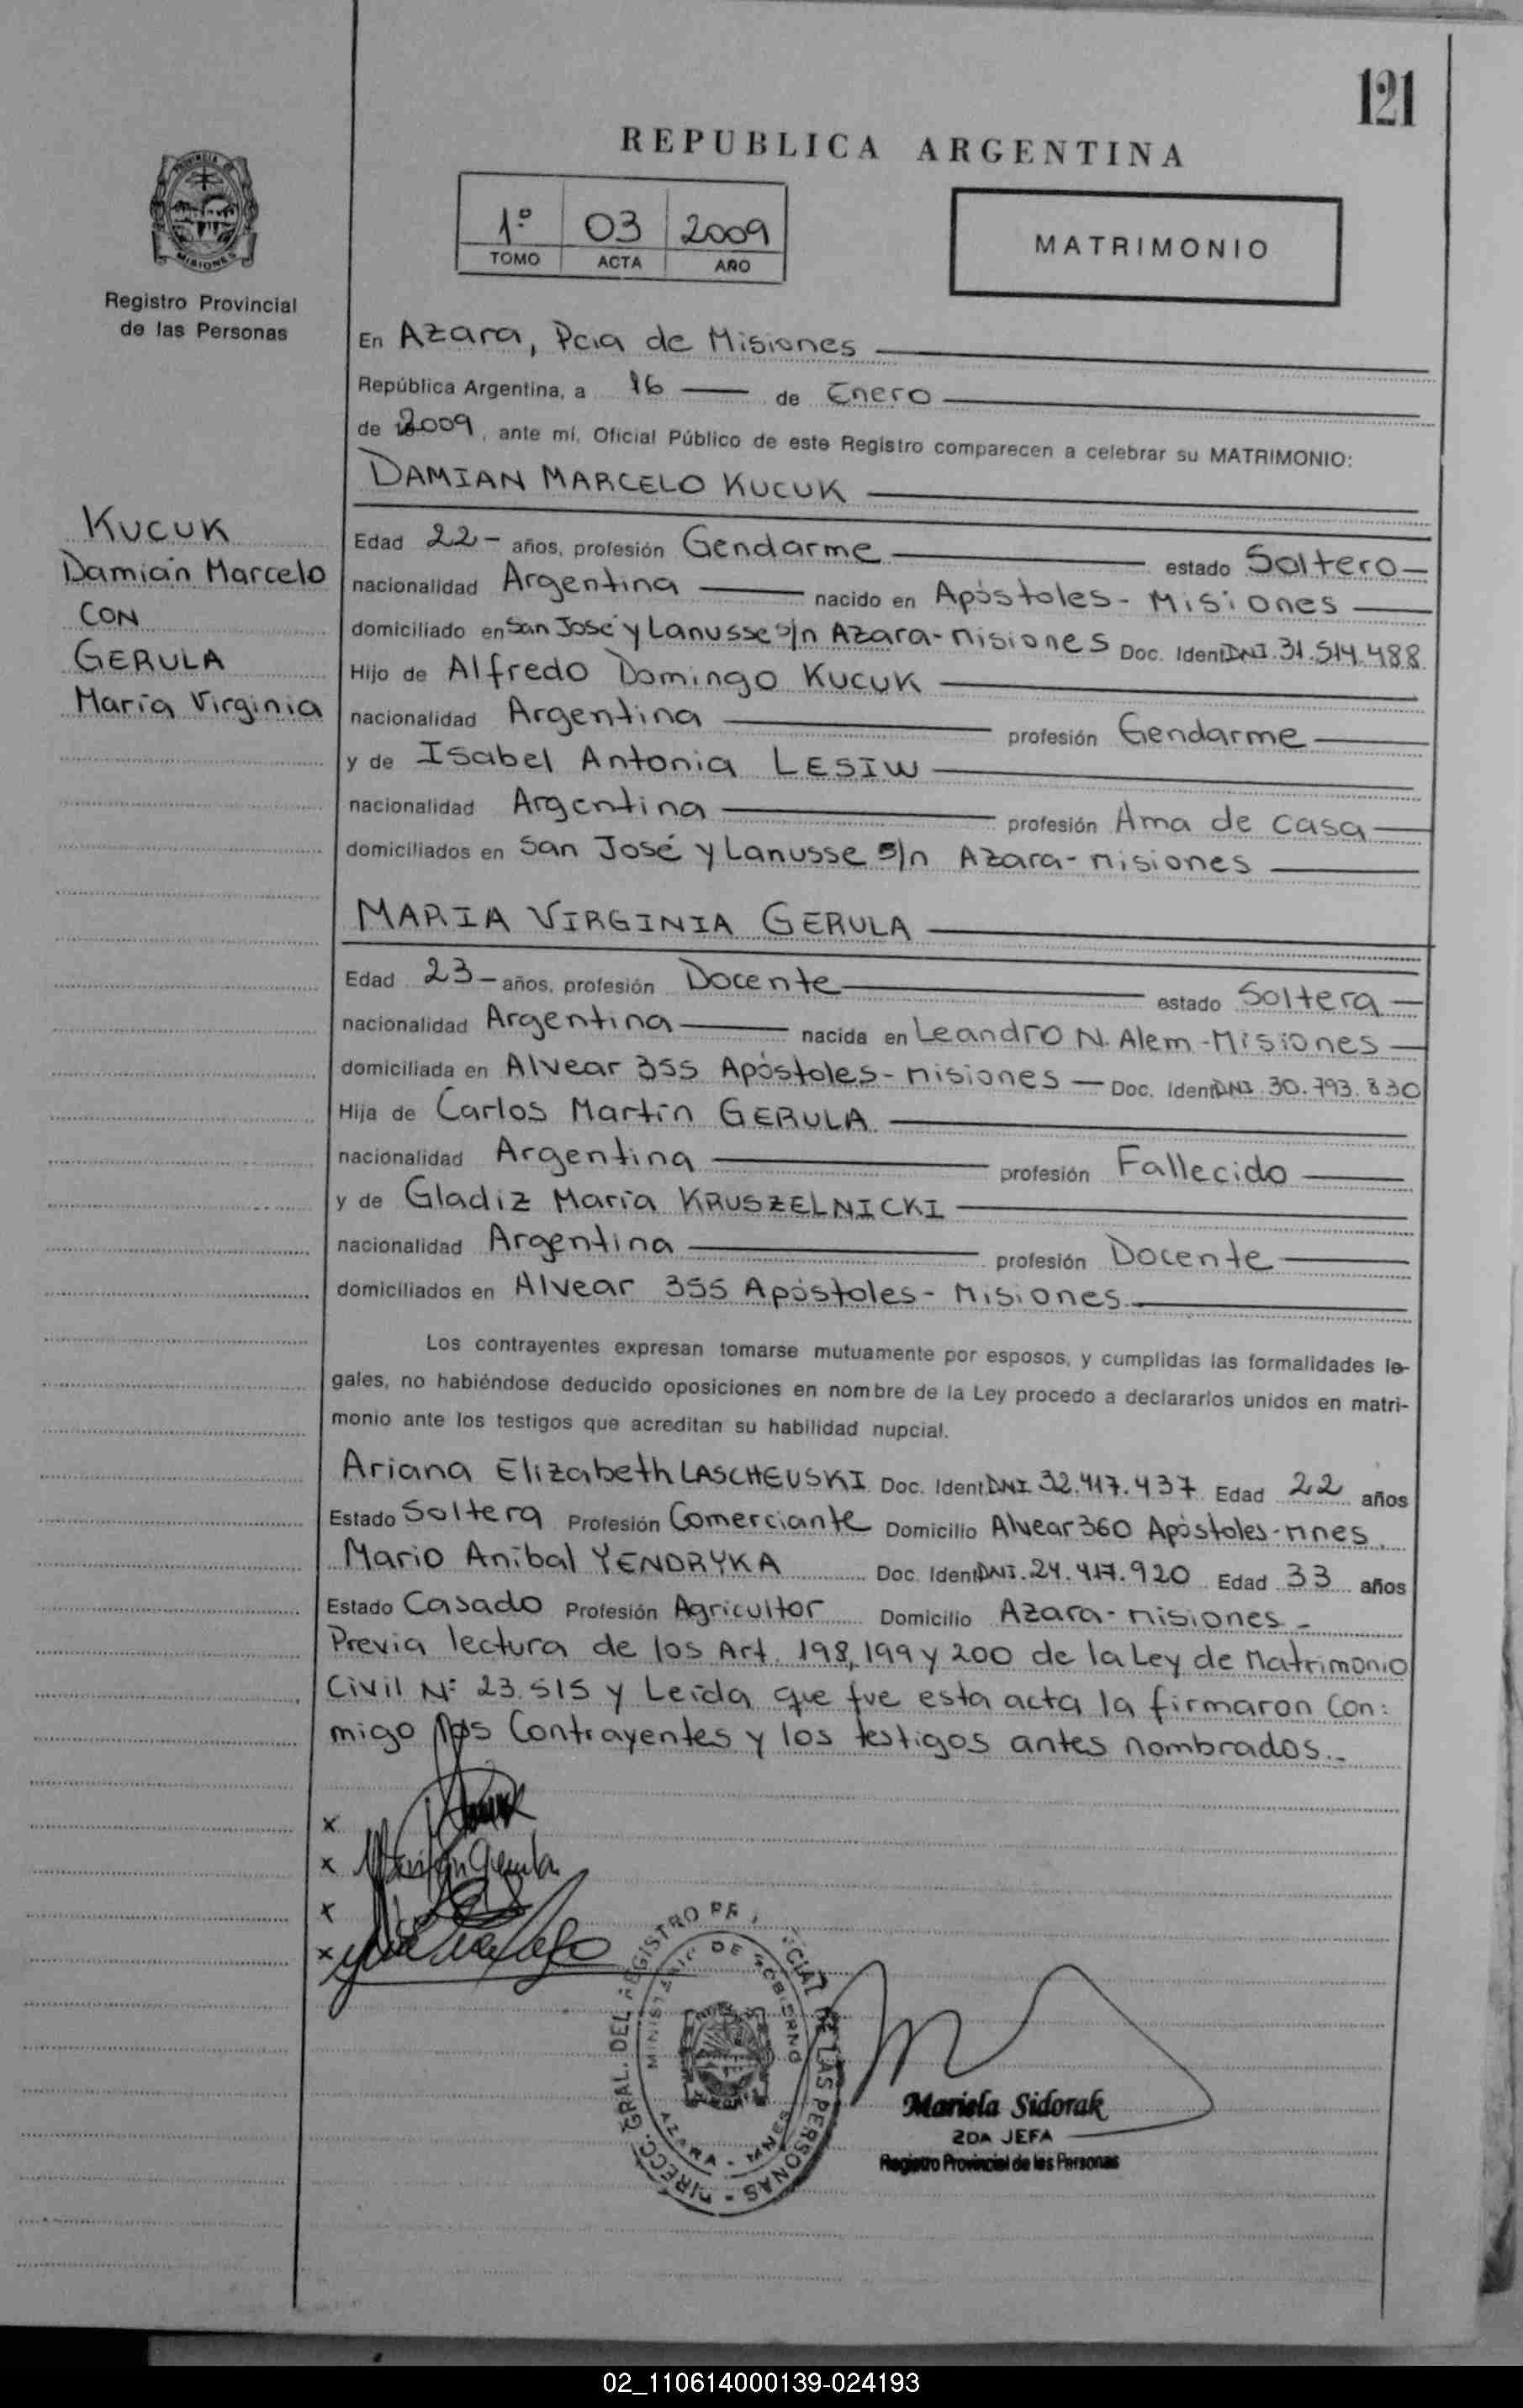 121
REPUBLICA ARGENTINA
1º 03 2009
TOMO ACTA AÑO
MATRIMONIO
PROVINCIA
MISIONES
Registro Provincial
de las Personas
En Azara, Pcia de Misiones
República Argentina, a 16 de Enero
de 2009, ante mí, Oficial Público de este Registro comparecen a celebrar su MATRIMONIO:
DAMIAN MARCELO KUCUK
KUCUK
Damián Marcelo
CON
GERULA
María Virginia
Edad 22- años, profesión Gendarme estado Soltero
nacionalidad Argentina nacido en Apóstoles - Misiones
domiciliado en San José y Lanusse s/n Azara - Misiones Doc. Ident DNI. 31.514.488
Hijo de Alfredo Domingo KUCUK
nacionalidad Argentina profesión Gendarme
y de Isabel Antonia LESIW
nacionalidad Argentina profesión Ama de casa
domiciliados en San José y Lanusse s/n Azara - Misiones
MARIA VIRGINIA GERULA
Edad 23- años, profesión Docente estado Soltera
nacionalidad Argentina nacida en Leandro N. Alem - Misiones
domiciliada en Alvear 355 Apóstoles - Misiones Doc. Ident DNI. 30.793.830
Hija de Carlos Martín GERULA
nacionalidad Argentina profesión Fallecido
y de Gladiz María KRUSZELNICKI
nacionalidad Argentina profesión Docente
domiciliados en Alvear 355 Apóstoles - Misiones
Los contrayentes expresan tomarse mutuamente por esposos, y cumplidas las formalidades le-
gales, no habiéndose deducido oposiciones en nombre de la Ley procedo a declararlos unidos en matri-
monio ante los testigos que acreditan su habilidad nupcial.
Ariana Elizabeth LASCHEUSKI Doc. Ident DNI 32.417.437 Edad 22 años
Estado Soltera Profesión Comerciante Domicilio Alvear 360 Apóstoles - Mnes.
Mario Aníbal YENDRYKA Doc. Ident DNI. 24.417.920 Edad 33 años
Estado Casado Profesión Agricultor Domicilio Azara - Misiones -
Previa lectura de los Art. 198, 199 y 200 de la Ley de Matrimonio
Civil Nº 23.515 y Leída que fue esta acta la firmaron con:
migo los Contrayentes y los testigos antes nombrados.-
x
x Gerula
x
x
DIRECC. GRAL. DEL REGISTRO PR CIAL DE LAS PERSONAS -
MINISTERIO DE GOBIERNO
AZARA - MNES
Mariela Sidorak
2DA JEFA
Registro Provincial de las Personas
02_110614000139-024193